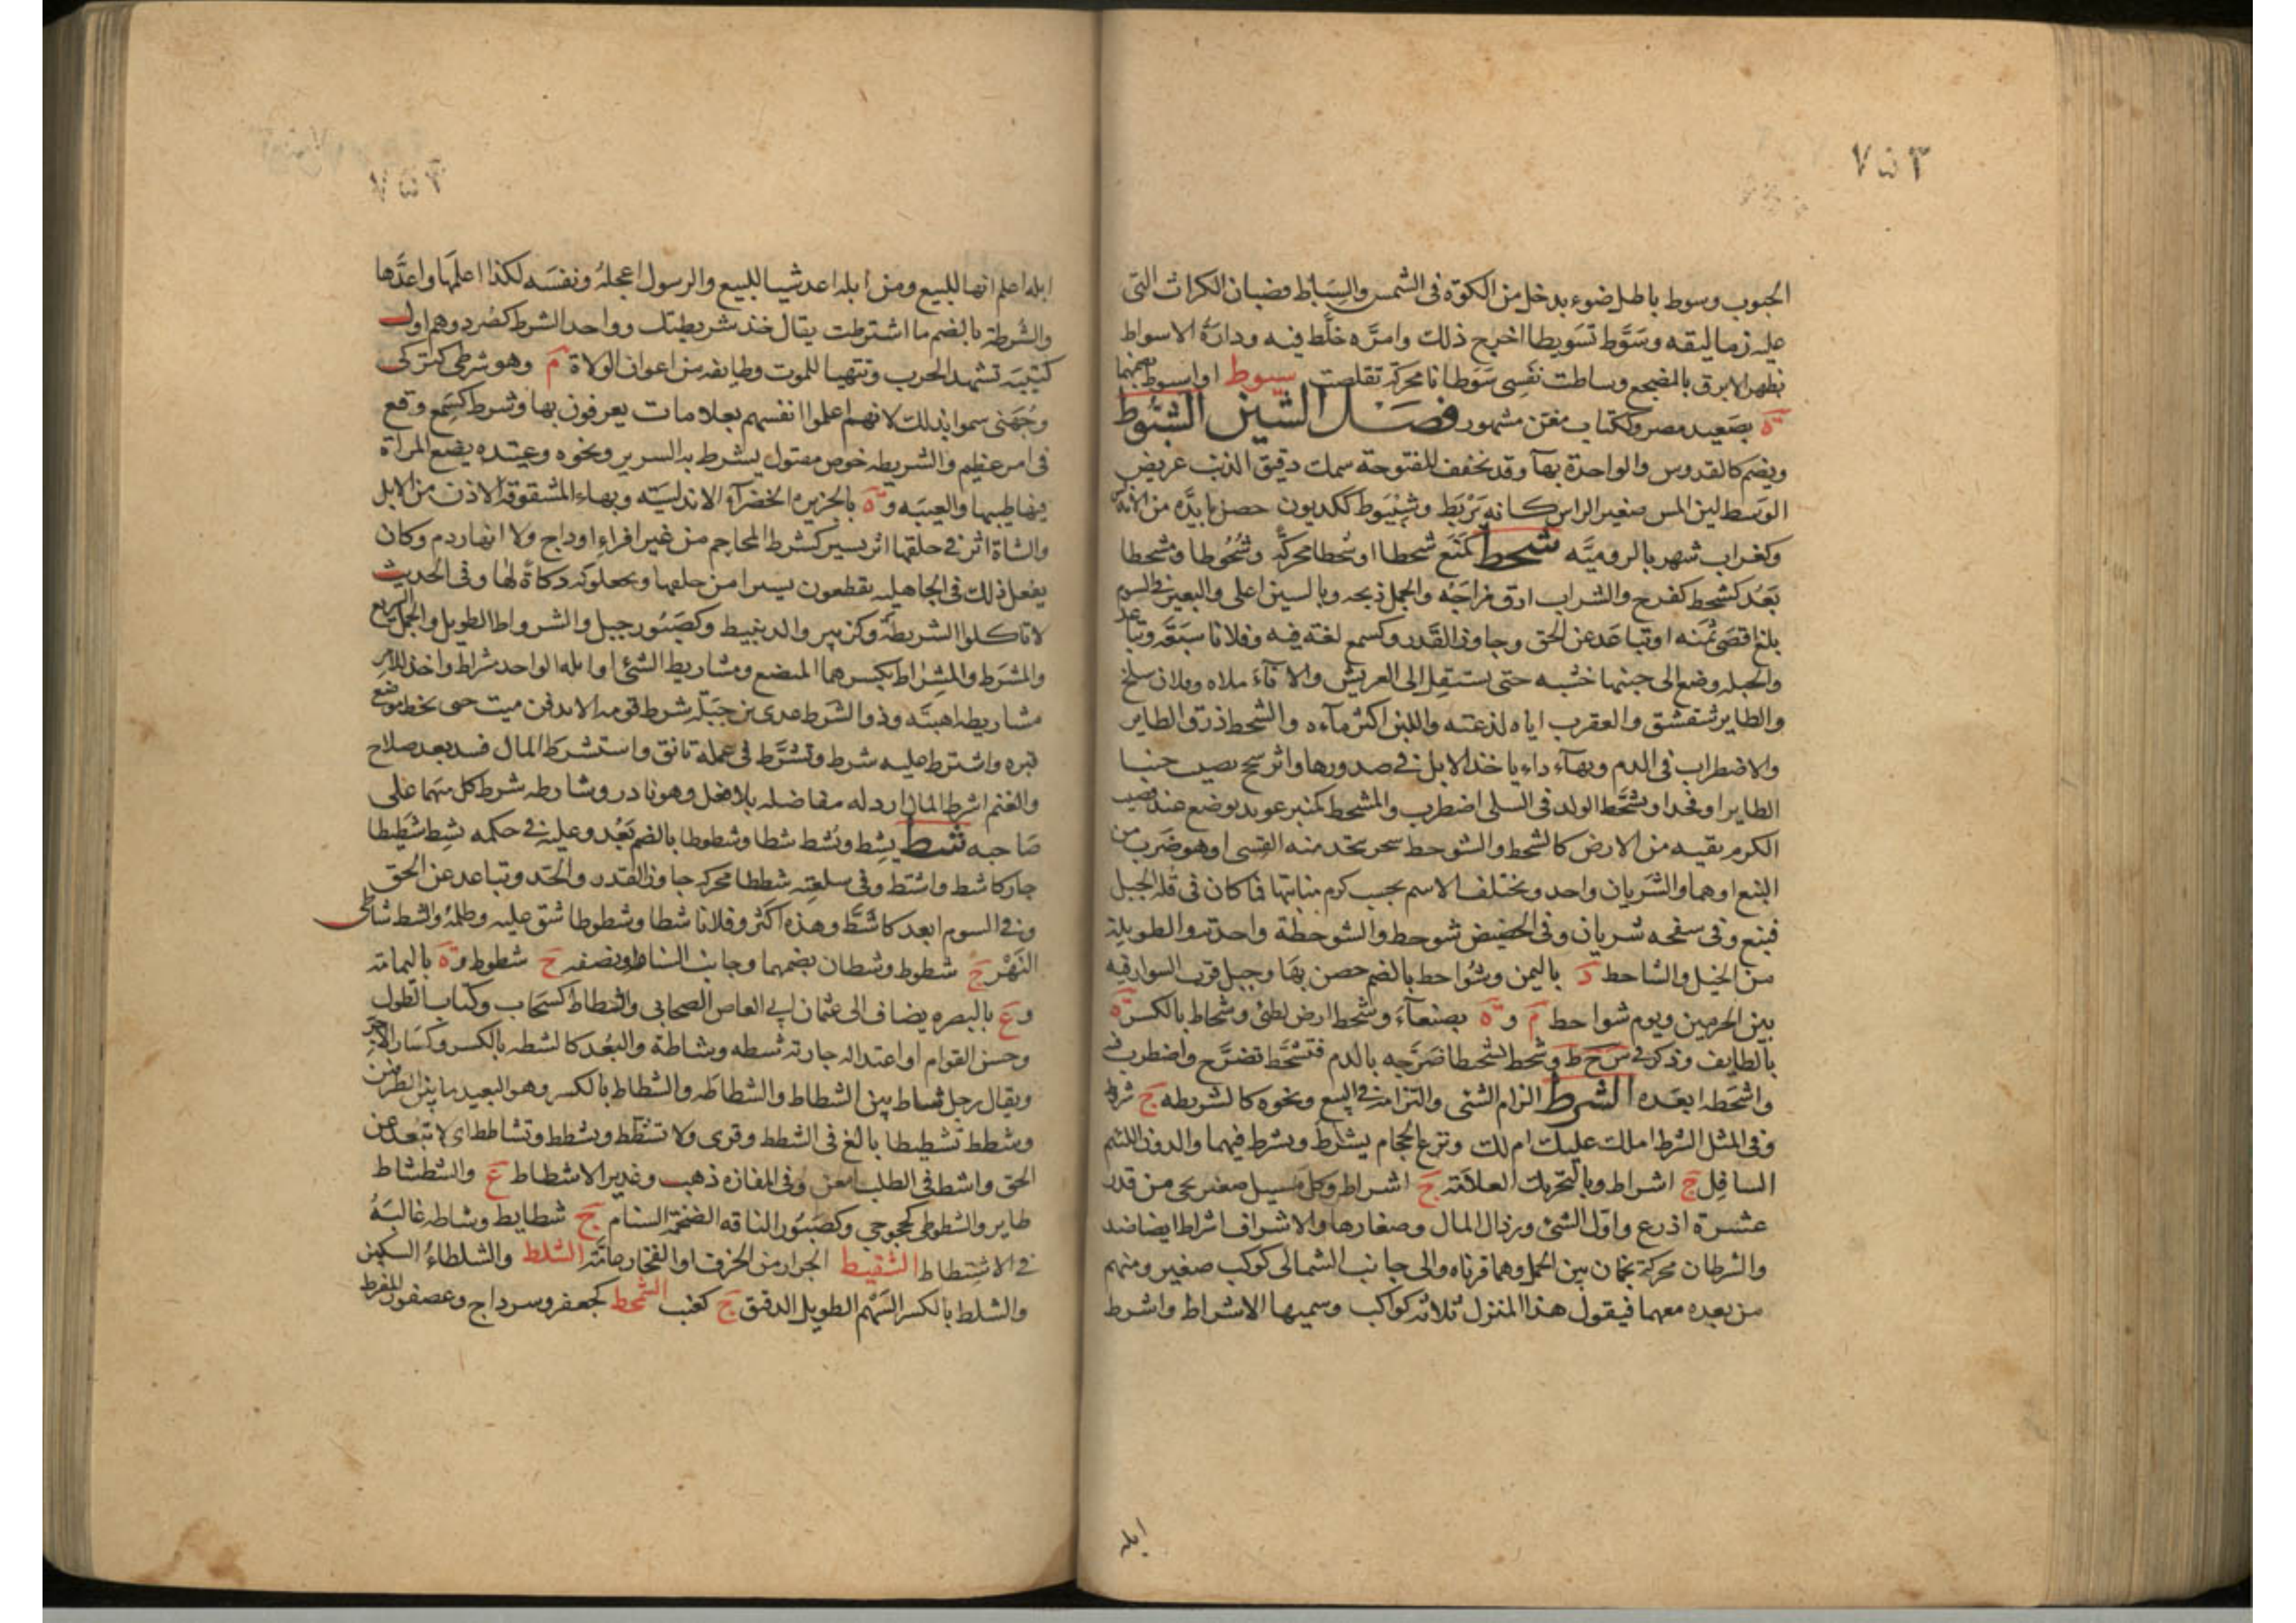 ٧٥٣
الجبوب وسوط باطل ضوء يدخل من الكوة فى الشمس والسياط قضبان الكراث التى
عليه زماليقه وسَوَّط تسويطا اخرج ذلك وامرَّه خلَّط فيه ودارة الاسواط
بظهر الابرق بالمضجع وساطت نفسى سَوَطانا محركة تقلصت سيوط او اسيوط بضمهما
ة بصَعيد مصر وككتاب مغن مشهور فصل الشين الشبُّوط
ويضم كالقدوس والواحدة بهآء وقد تخفف المفتوحة سمك دقيق الذنب عريض
الوسط لين المس صغير الراس كانه بَرْبَط وشِبْيَوط ككديون حصن بابدَّه من الاندلس
وكغراب شهر بالروميَّه شحط كمَنَع شحطا وشحطا محركَّه وشُحُوطا ومشحطا
بَعُد كشحط كفرح والشراب ارق مزاجَه والجمل ذبحه وبالسين اعلى والبعير فى السوم
بلغ اقصَى ثمنَه او تباعَد عن الحق وجاوز القَدر وكسمع لغة فيه وفلانا سبَقَه وتباعد
والحبله وضع الى جنبها خشبه حتى يستقل الى العريش والانآءَ ملاه وفلان سلخ
والطاير شقشق والعقرب اياه لدغته واللبن اكثر مآءه والشحط ذرق الطاير
والاضطراب فى الدم وبهآء داء ياخذ الابل فى صدورها واثر سحج يصيب جنبا
الطاير او فخذا وتشحَّط الولد فى السلى اضطرب والمشحط كمنبر عويد يوضع عند قضيب
الكرم يقيه من الارض كالشحط والشوحط شجر يتخد منه القسى او هو ضَرب من
النبع او هما والشَريان واحد ويختلف الاسم بحسب كرم منابتها فما كان فى قلة الجبل
فنبع وفى سفحه شريان وفى الحضيض شوحط والشوحَطَة واحدته والطويلة
من الخيل والشاحط د باليمن وشُواحط بالضم حصن بهَا وجبل قرب السوارقيه
بين الحرمين ويوم شواحط م و ة بصنعآء وشحط ارض لطئ وشحاط بالكسر ة
بالطايف وذكر فى س ح ط وشحط تشحيطا ضَرَّجه بالدم فتشحَّط تضرَّج واضطرب فيه
واشحَطه ابعَده الشرط الزام الشئ والتزامه فى البيع ونحوه كالشريطه ج شروط
وفى المثل الشرط املك عليك ام لك وبزغ الحجام يشرِط ويشرُط فيهما والدون اللئيم
السافِل ج اشراط وبالتحريك العلامَة ج اشراط وكل مَسيل صغير يجى من قدر
عشرة اذرع واوّل الشئ ورذال المال وصغارها والاشراف اشراط ايضا ضد
والشرطان محركة نجمان من الحمل وهما قرناه والى جانب الشمالى كوكب صغير ومنهم
من بعده معهما فيقول هذا المنزل ثلاثه كواكب وسميها الاشراط واشرط
ابله
٧٥٣
ابله اعلم انها للبيع ومن ابله اعد شيا للبيع والرسول اعجلهُ ونفسَه لكذا اعلمَها واعدَّها
والشُرطة بالضم ما اشترطت يقال خذ شريطتك وواحد الشرط كصُرد وهم اول
كتيبَه تشهد الحرب وتتهيا للموت وطايفه من اعوان الولاة م وهو شرطى كتركى
وجُهَنى سموا بذلك لانهم اعلموا انفسهم بعلامات يعرفون بها وشرط كسَمِع وقع
فى امر عظيم والشريطه خوص مفتول يشرط به السرير ونحوه وعتيده يضع المراة
فيها طيبها والعيبَه و ة بالجزيرة الخضرآء الاندلسيّه وبهاء المشقوقة الاذن من الابل
والشاة اثر فى حلقها اثر يسير كشرط المحاجم من غير افراء اوداج ولا انهار دم وكان
يفعل ذلك فى الجاهليه يقطعون يسيرا من حلقها ويجعلونه ذكاةً لها وفى الحديث
لا تاكلوا الشريطَة وكزبير والد نبيط وكصَبُور جبل والشرواط الطويل والجمل السريع
والمشرَط والمِشراط بكسرهما المبضع ومشاريط الشئ اوايله الواحد مشراط واخذ للامر
مشاريطه اهبتَه وذو الشرط عدى بن جَبَلَة شرط قومه الا يدفن ميت حتى يخط موضع
قبره واشترط عليه شرط وتَشَرَّط فى عمله تانق واستشرط المال فسد بعد صلاح
والغنم اشرط المال ارذله مفاضله بلا فعل وهو نادر وشارطه شرط كل منهما على
صَاحبه شط يشِط ويشُط شطا وشطوطا بالضم بَعُد وعليه فى حكمه يشِط شطِيطا
جار كاشط واشتط وفى سلعته شططا محركه جاوز القدر والحَد وتباعد عن الحق
وفى السوم ابعد كاشَطَّ وهذه اكثر وفلانا شطا وشطوطا شق عليه وظلمهُ والشط شاطى
النَهْر ج شطوط وشطان بضمهما وجانب السنام او نصفه ج شطوط و ة باليمامة
و ع بالبصره يضاف الى عثمان بن ابى العاص الصحابى والشطاط كسَحاب وكتاب الطول
وحسن القوام او اعتداله جارية شطه وشاطة والبُعد كالشطه بالكسر وكسَار الآجر
ويقال رجل شاط بين الشطاط والشطاطَه والشطاط بالكسر وهو البعيد ما بين الطرفين
وشطط تشطيطا بالغ فى الشطط وقرى ولا تشطِّط وتشطط وتشاطط اى لا تبعُد عن
الحق واشط فى الطلب امعَن وفى المفازه ذهب وغدير الاشطاط ع والشطشاط
طاير والشطوطى كخجوجى وكصَبُور الناقه الضخمة السنام ج شطايط وشاطه غالبَهُ
فى الاشتطاط الشقيط الجرار من الخزف او الفخار عامَّة الشلط والشلطاءُ السكين
والشلط بالكسر السَهْم الطويل الدقيق ج كعنب الشمحط كجعفر وسرداج وعصفور المفرط